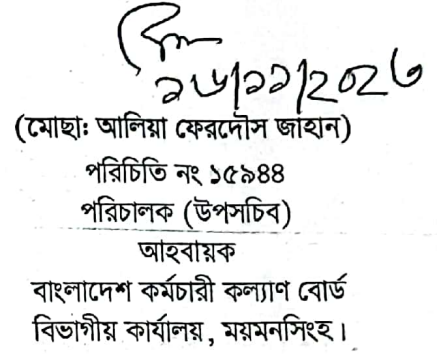 ১৬/১১/২০২৩
(মোছাঃ আলিয়া ফেরদৌস জাহান)
পরিচিতি নং ১৫৯৪৪
পরিচালক (উপসচিব)
আহবায়ক
বাংলাদেশ কর্মচারী কল্যাণ বোর্ড
বিভাগীয় কার্যালয়, ময়মনসিংহ।